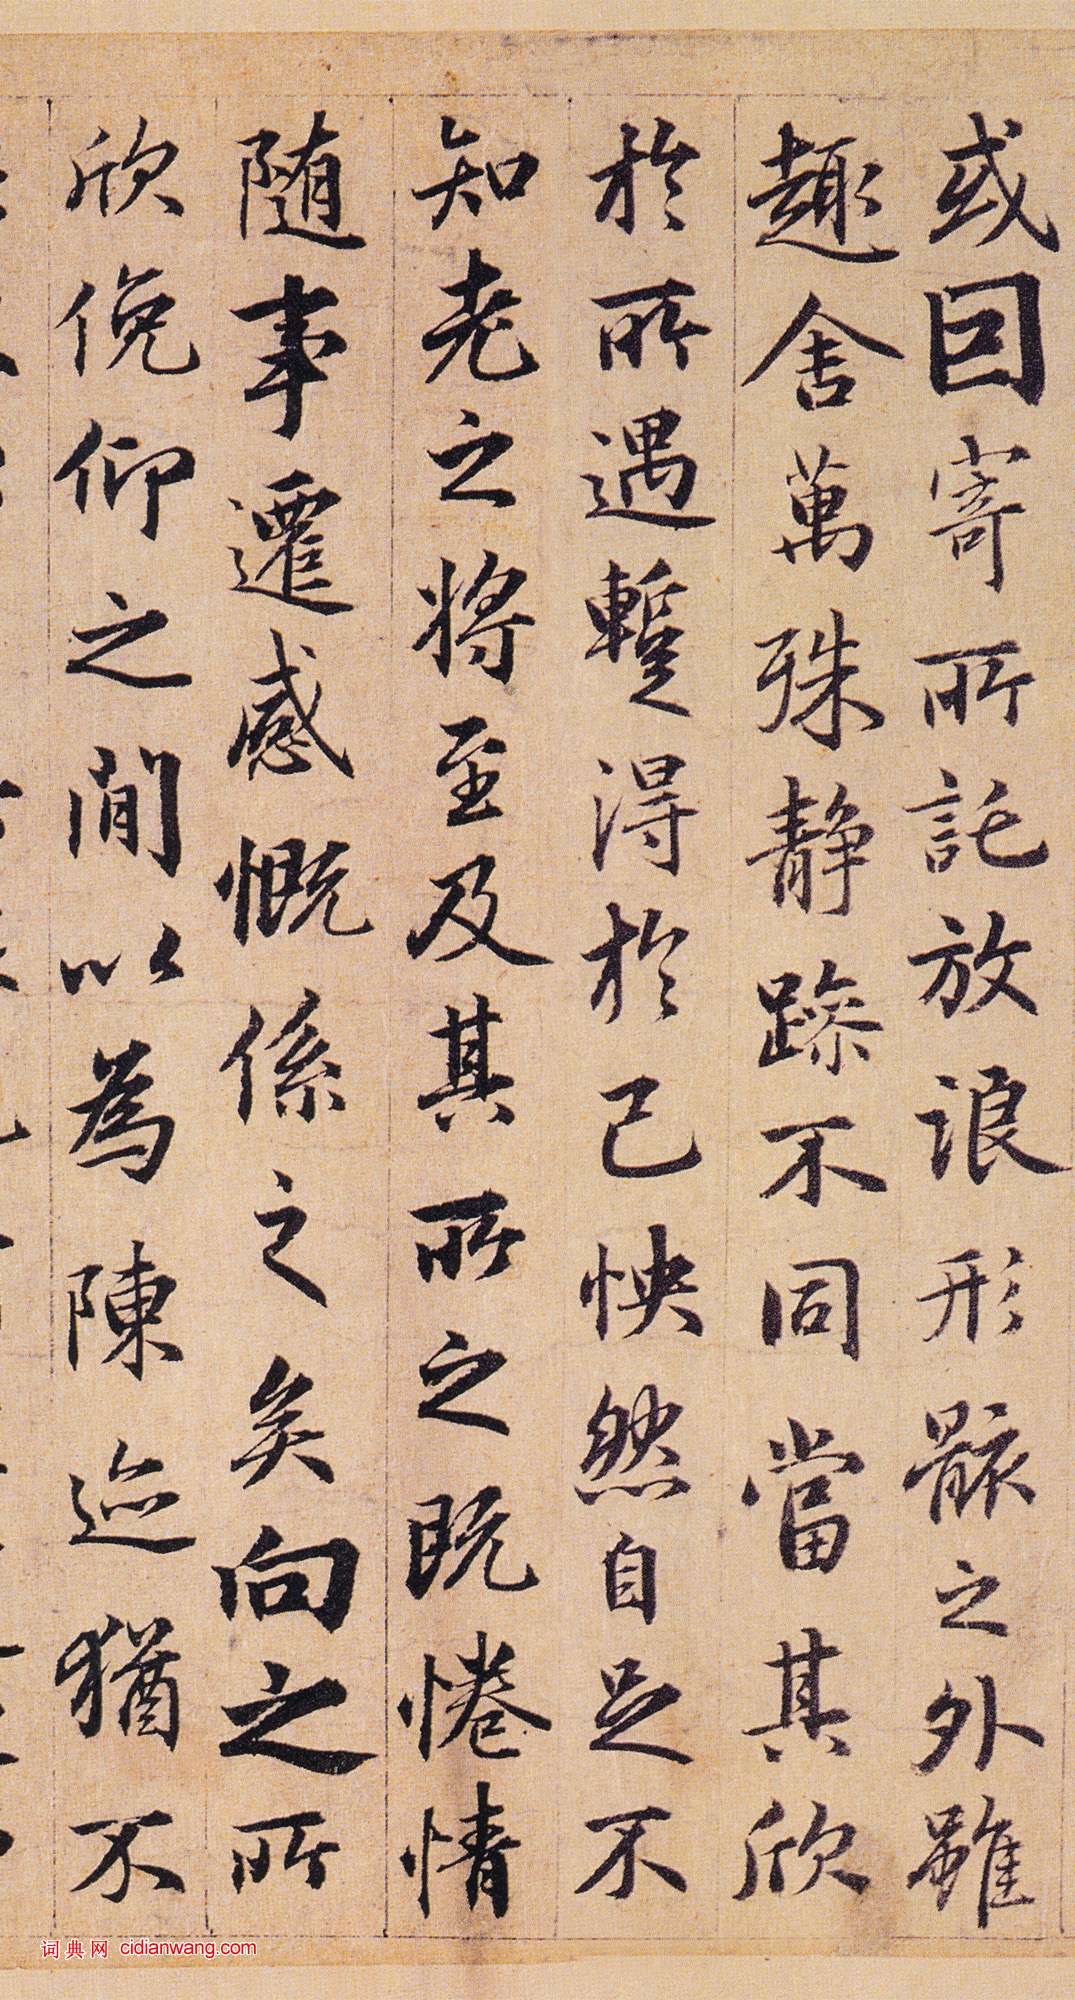 或因寄所託放浪形骸之外雖
趣舍萬殊静躁不同當其欣
於所遇蹔得於己怏然自足不
知老之將至及其所之既惓情
随事遷感慨係之矣向之所
欣俛仰之閒以為陳迹猶不
词典网 cidianwang.com